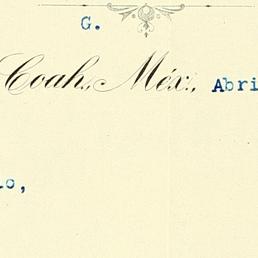 G.
Coah., Méx., Abri
o,